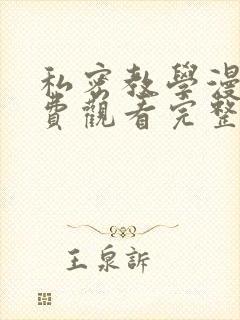 私密教學漫
費觀看完整
王泉訴